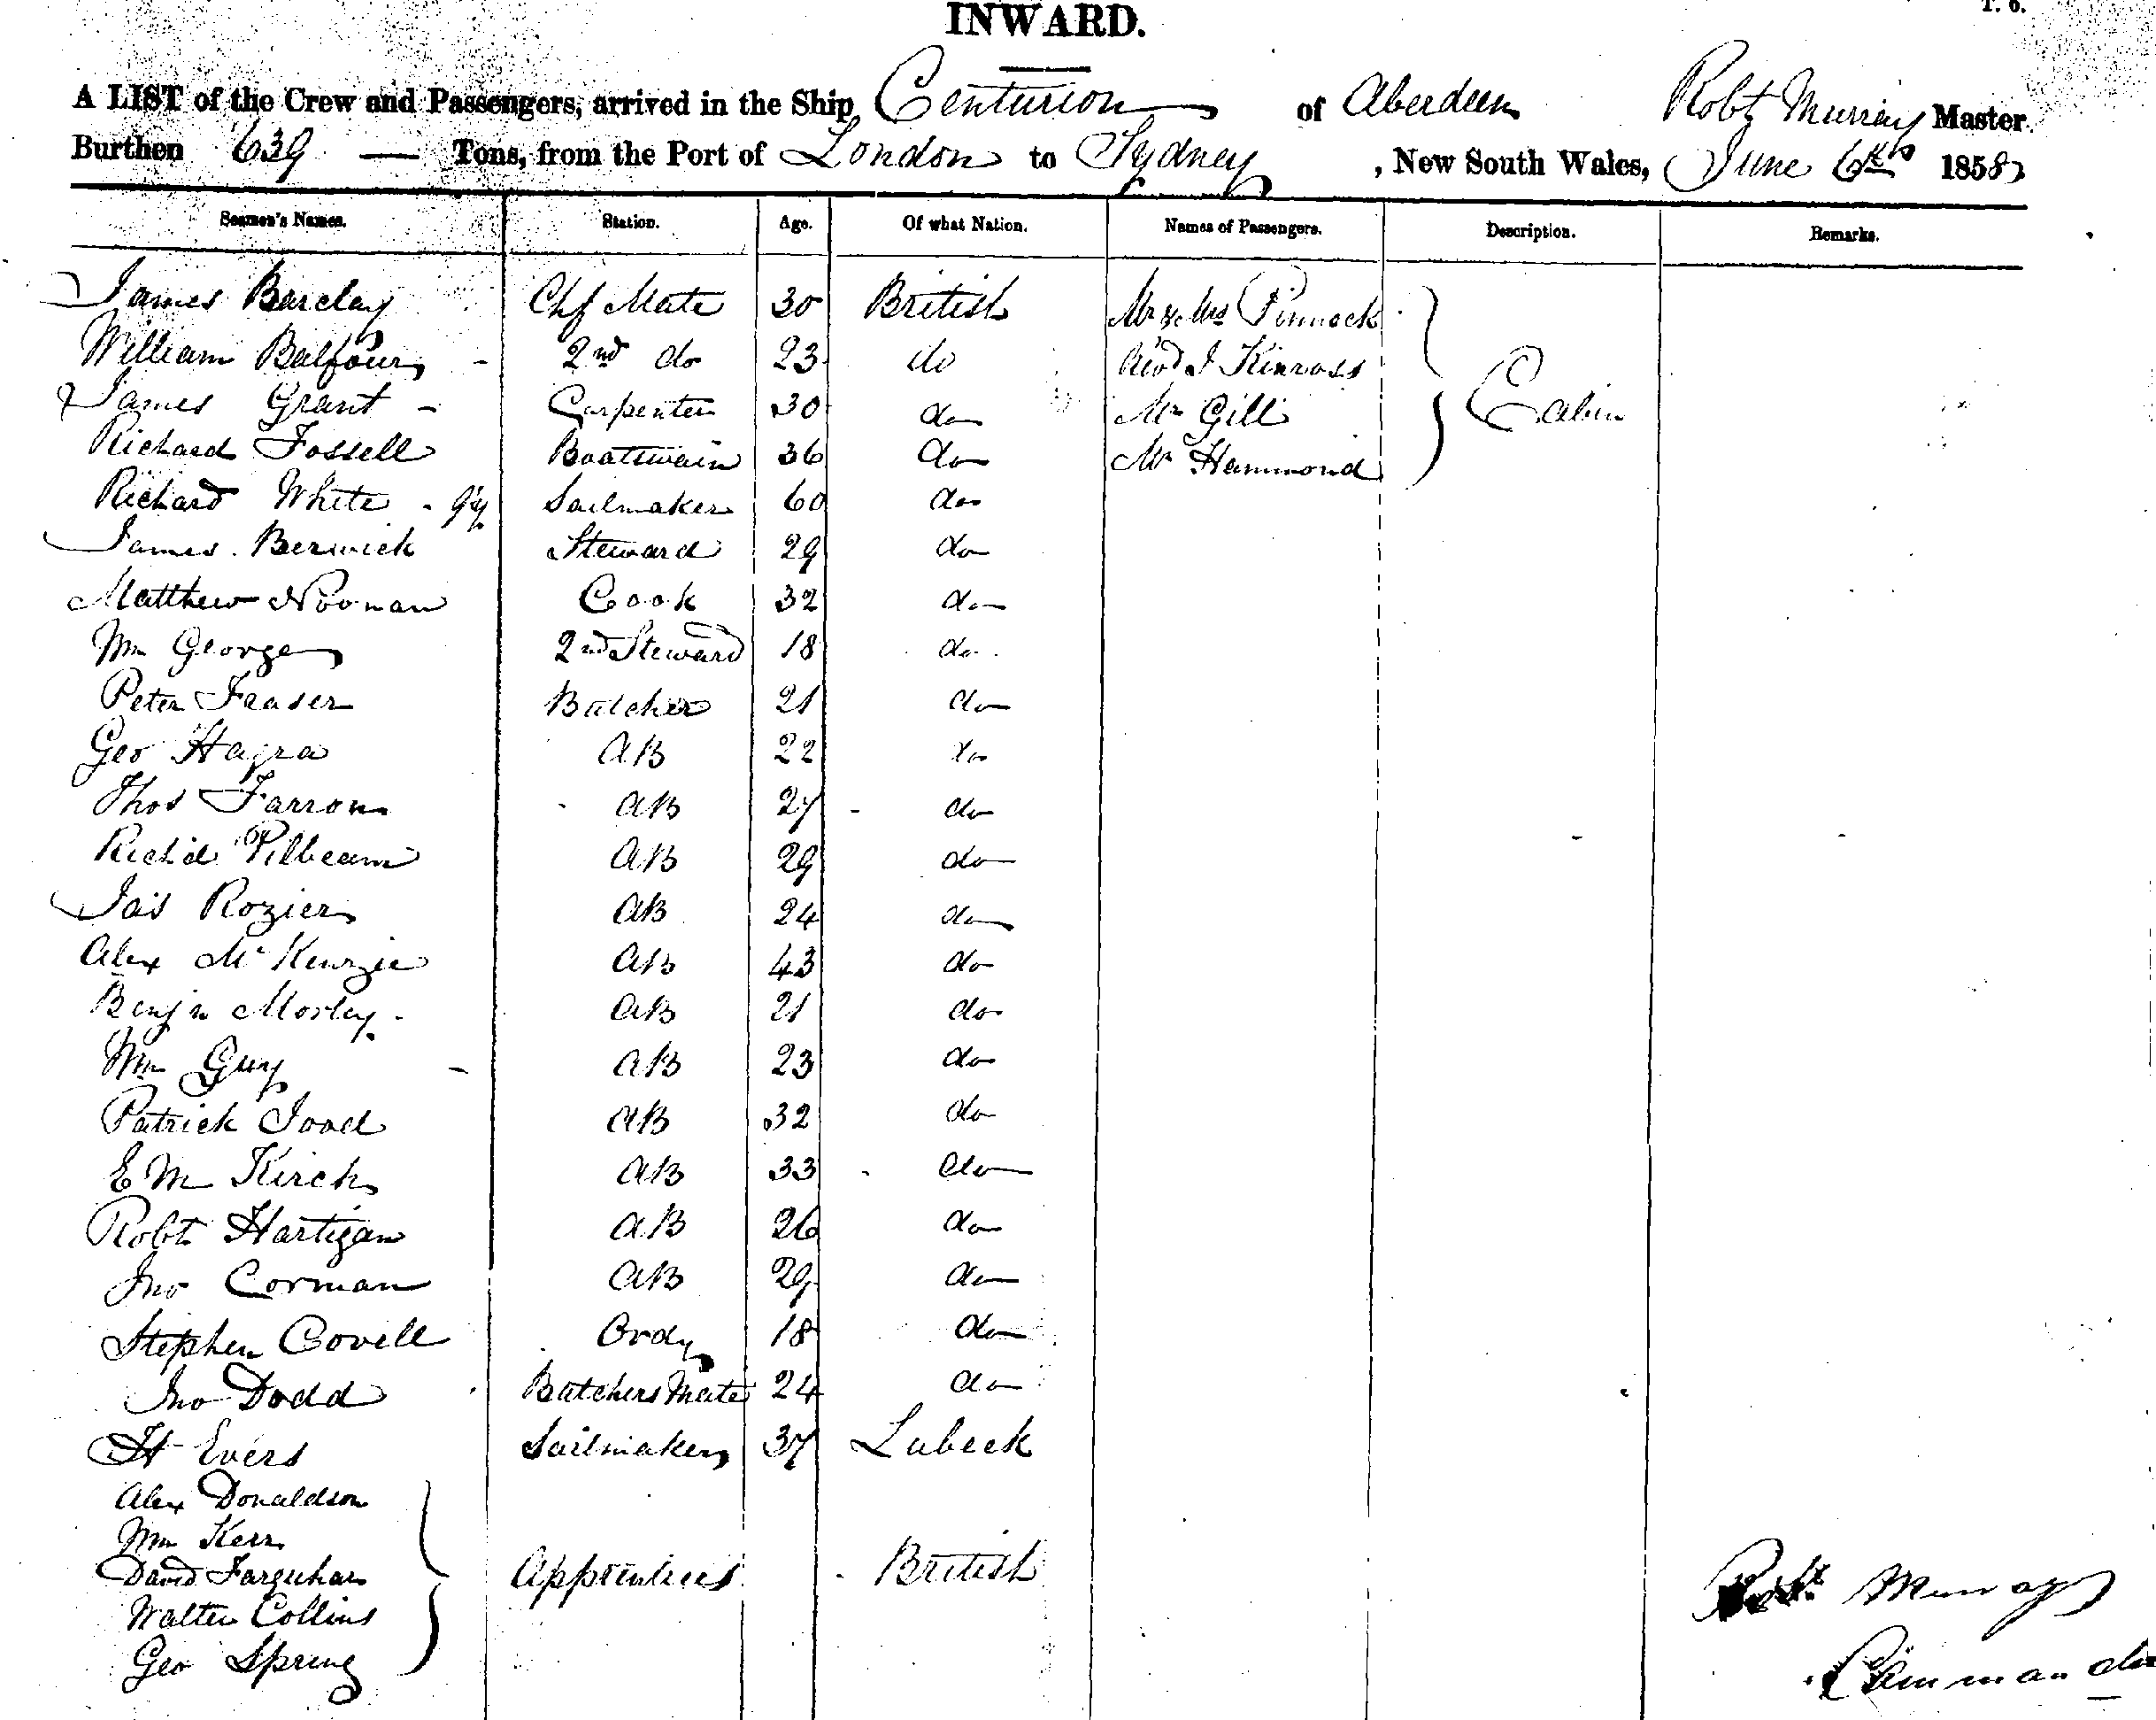 INWARD.
T. 6.
A LIST of the Crew and Passengers, arrived in the Ship Centurion of Aberdeen Robt Murray Master.
Burthen 639 — Tons, from the Port of London to Sydney, New South Wales, June 6th 1858
Seamen's Names. Station. Age. Of what Nation. Names of Passengers. Description. Remarks.
James Barclay Chf Mate 30 British Mr & Mrs Pinnock
William Balfour 2nd do 23 do Revd J Kinross
James Grant Carpenter 30 do Mr Gill Cabin
Richard Fossell Boatswain 36 do Mr Hammond
Richard White Sailmaker 60 do
James Berwick Steward 29 do
Matthew Noonan Cook 32 do
Wm George 2nd Steward 18 do
Peter Fraser Butcher 21 do
Geo Hagra AB 22 do
Thos Farrow AB 27 do
Rich'd Pilbeam AB 29 do
Jas Rozier AB 24 do
Alex McKenzie AB 43 do
Benjn Morley AB 21 do
Wm Guy AB 23 do
Patrick AB 32 do
E M Kirch AB 33 do
Robt Hartigan AB 26 do
Jno Corman AB 29 do
Stephen Covell Ordy 18 do
Jno Dodd Butchers Mate 24 do
H Evers Sailmaker 37 Lubeck
Alex Donaldson
Wm Kerr
David Farquhar Apprentices British
Walter Collins
Geo Spring
Robt Murray
Commander